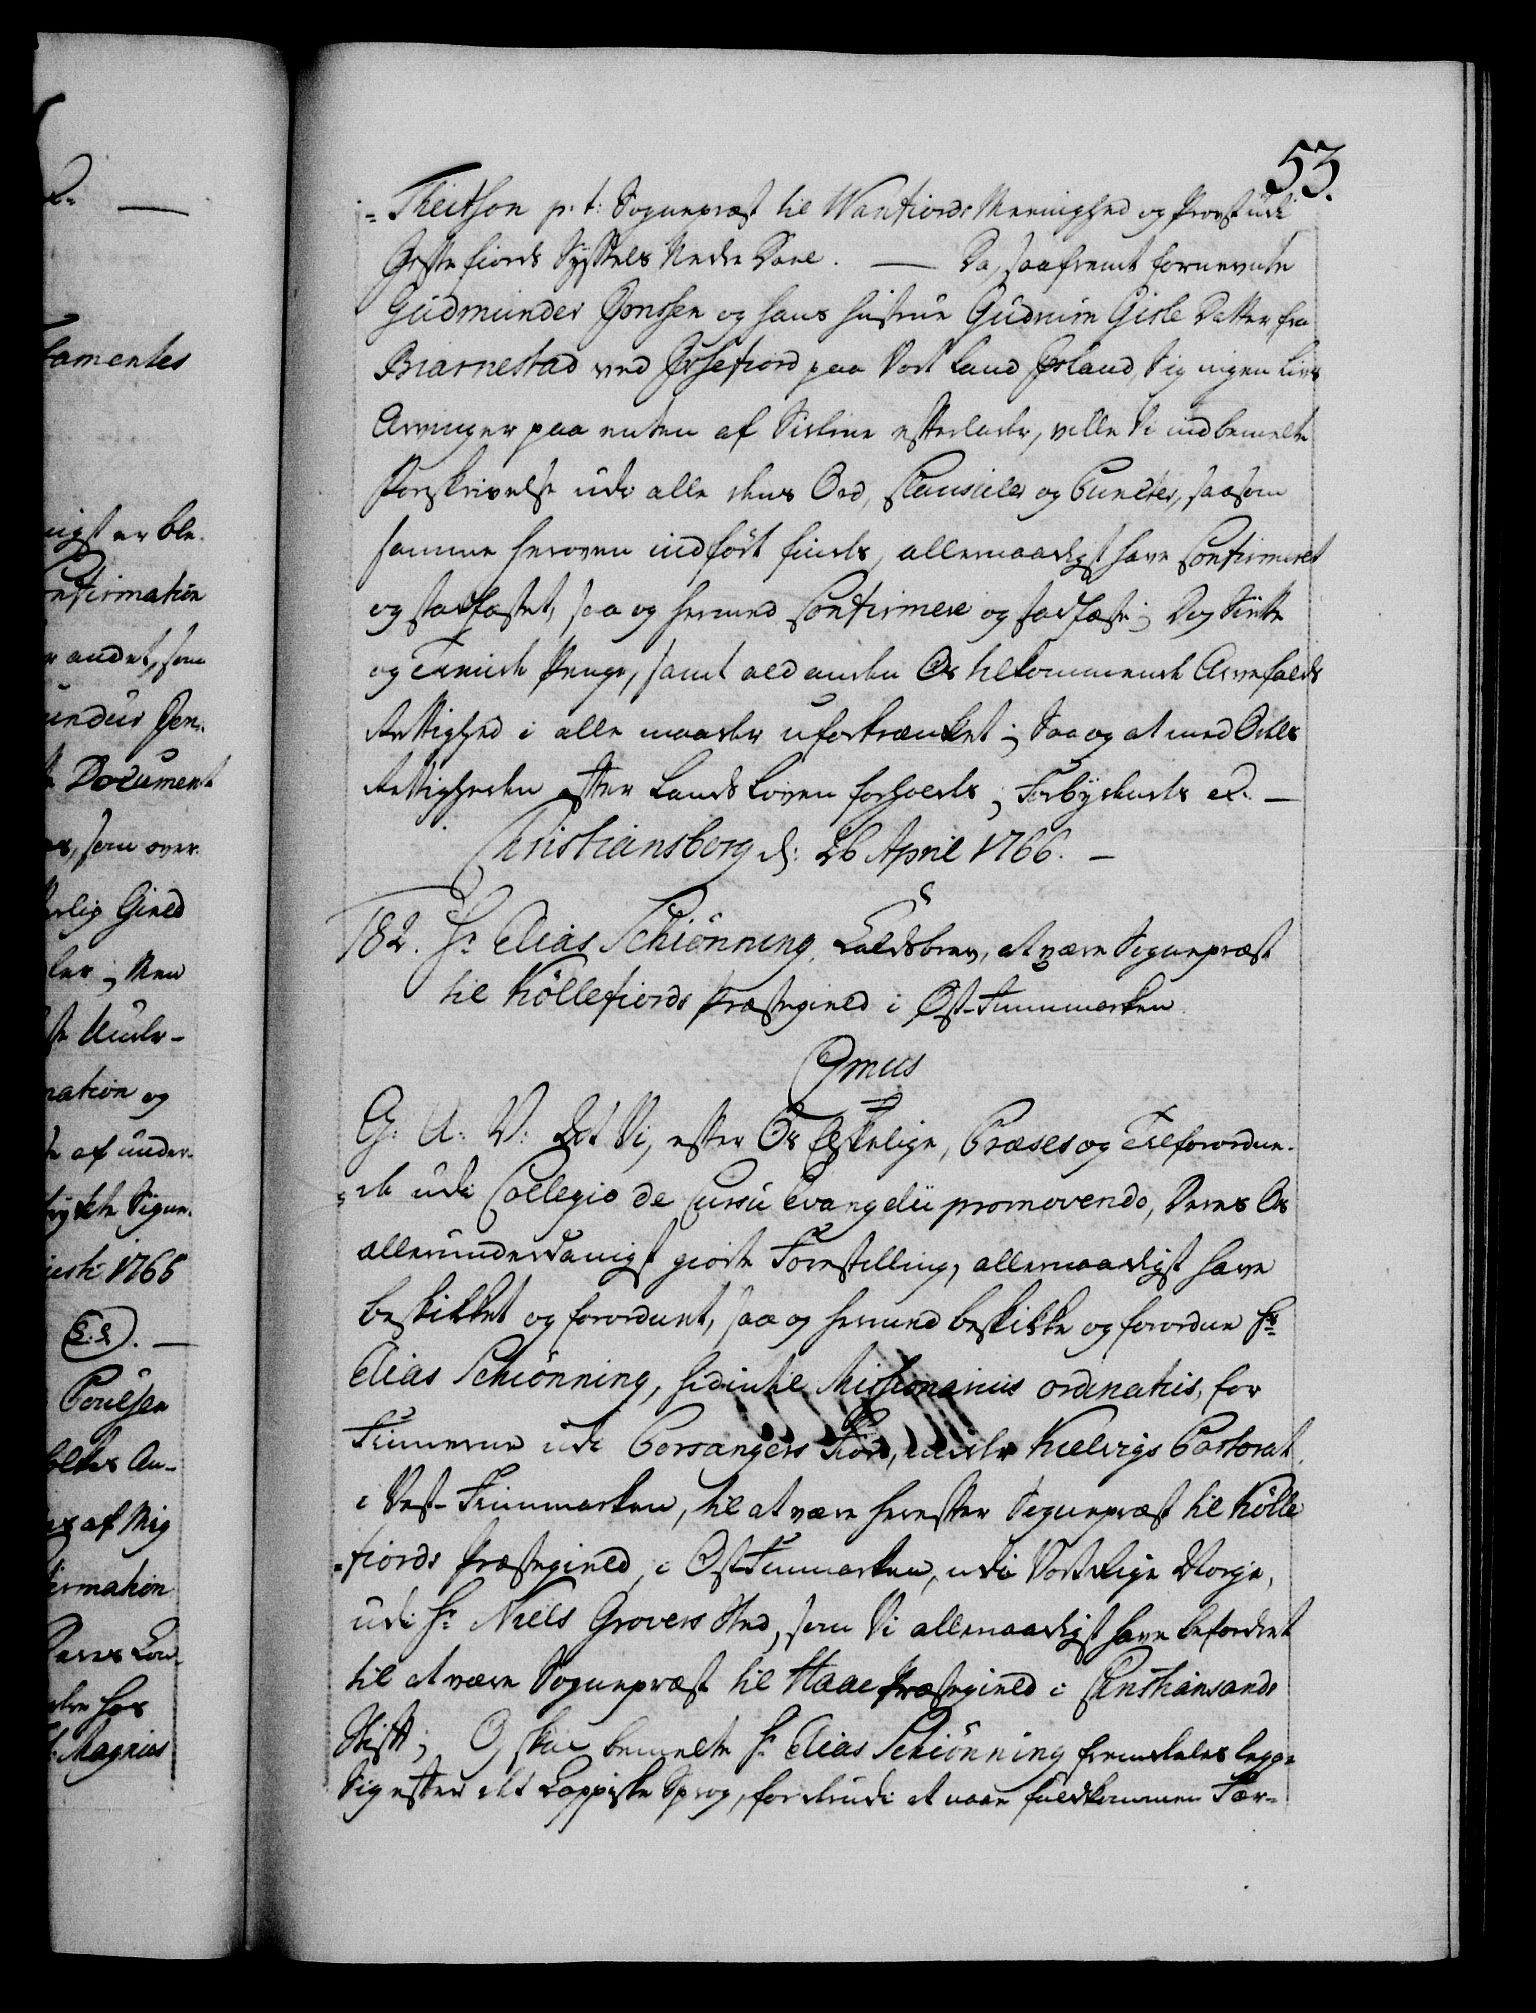 53.
-Theitson p: t: Sognepræst til Wantfiords Menighed og Provst udi
Jssefiords Syssels Nedre Deel. — Da, saafremt fornevnte
Gudmunder Jonssen og hans Hustrue Gudrun Gisle Datter fra
Biarnestad ved Jssefiord paa Vort Land Jsland, Sig ingen Livs
Arvinger paa enten af Siderne efterlader, ville Vi indbemelte
Forskrivelse udi alle dens Ord, Clausuler og Puncter, saasom
samme heroven indført findes, allernaadigst have Confirmeret
og stadfæstet, saa og hermed Confirmere og stadfæste; Dog Siette
og Tiende Penge, samt ald anden Os tilkommende Arvefalds
Rettighed i alle maader uforkrænket; Saa og at med Odels
Rettigheden efter Lands Loven forholdes; Forbydendes etc. —
Christiansborg d: 26 April 1766. —
182. Hr Elias Schiönning, Kaldsbrev, at være Sognepræst
til Köllefiords Præstegield i Øst-Finnmarken
Gratis
G: A: V: At Vi, efter Os Elskelige, Præses og Tilforordne-
de udi Collegio de Cursu Evangelii promovendo, Deres Os
allerunderdanigst giorte Forestilling, allernaadigst have
beskikket og forordnet, saa og hermed beskikke og forordne Hr
Elias Schiönning, hidindtil Missionarius ordinatus, for
Finnerne udi Porsangers Fiord, under Kielvigs Pastorat,
i Vest-Finnmarken, til at være herefter Sognepræst til Kölle
-fiords Præstegield, i Øst-Finmarken, udi Vort Rige Norge,
udi Hr Niels Grovers Sted, som Vi allernaadigst have befordret
til at være Sognepræst til Haae Præstegield i Christiansands
Stift; Og skal bemelte Hr Elias Schiönning fremdeles legge
Sig efter det Lappiske Sprog, for derudi at naae fuldkommen Fær-